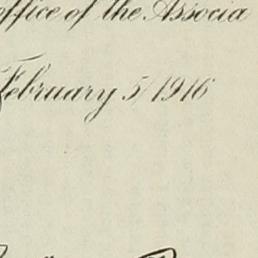 office of the Associa
February 5, 1916